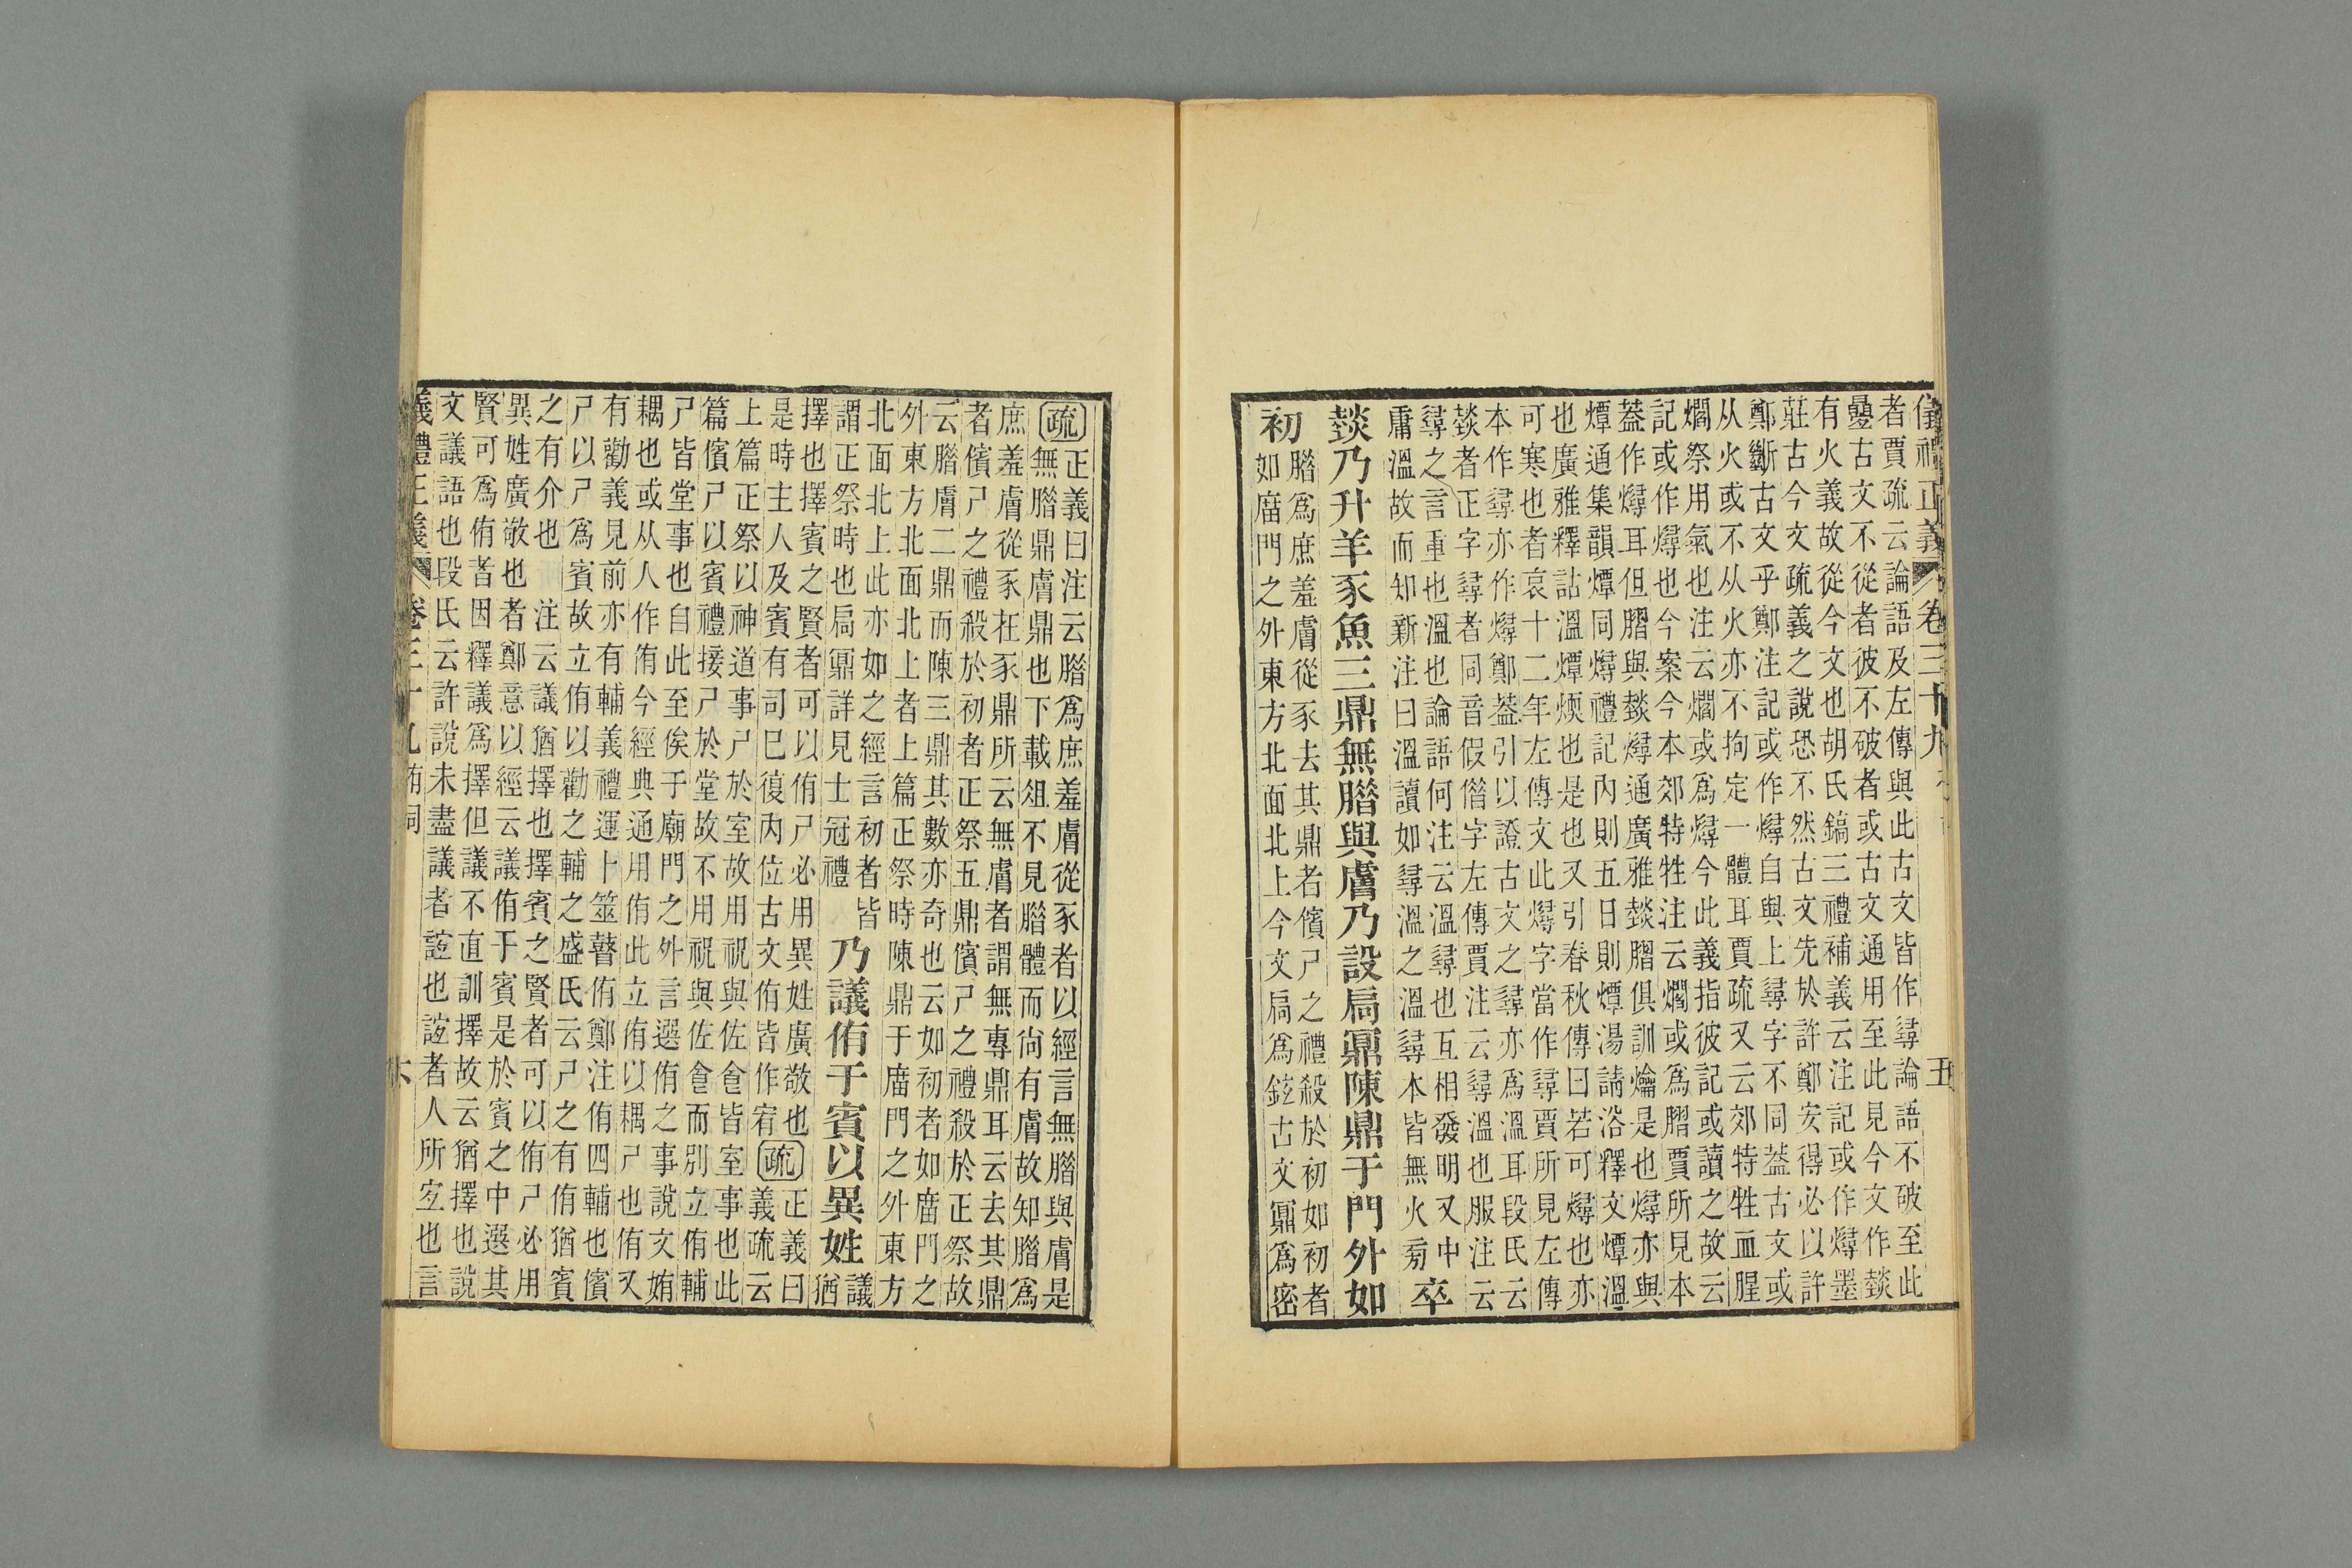 儀禮正義 卷三十九 五
者賈疏云論語及左傳與此古文皆作尋論語不破至此
疊古文不從者彼不破者或古文通用至此見今文作燅
有火義故從今文也胡氏鎬三禮補義云注記或作燖墨
莊古今文疏義之說恐不然古文先於許鄭安得必以許
鄭斷古文乎鄭注記或作燖自與上尋字不同葢古文或
从火或不从火亦不拘定一體耳賈疏又云郊特牲血腥
爓祭用氣也注云爓或爲燖今此義指彼記或讀之故云
記或作燖也今案今本郊特牲注云爓或爲膶賈所見本
葢作燖耳但膶與燅燖通廣雅燅膶俱訓爚是也燖亦與
燂通集韻燂同燖禮記內則五日則燂湯請浴釋文燂溫
也廣雅釋詁溫燂煗也是也又引春秋傳曰若可燖也亦
可寒也者哀十二年左傳文此燖字當作尋賈所見左傳
本作尋亦作燖鄭葢引以證古文之尋亦爲溫耳段氏云
燅者正字尋者同音假借字左傳賈注云尋溫也服注云
尋之言重也溫也論語何注云溫尋也互相發明又中
庸溫故而知新注曰溫讀如尋溫之溫尋本皆無火㫄 卒
燅乃升羊豕魚三鼎無腊與膚乃設扃鼏陳鼎于門外如
初 腊爲庶羞膚從豕去其鼎者儐尸之禮殺於初如初者
如廟門之外東方北面北上今文扃爲鉉古文鼏爲密
疏 正義曰注云腊爲庶羞膚從豕者以經言無腊與膚是
無腊鼎膚鼎也下載俎不見腊體而尙有膚故知腊爲
庶羞膚從豕在豕鼎所云無膚者謂無專鼎耳云去其鼎
者儐尸之禮殺於初者正祭五鼎儐尸之禮殺於正祭故
云腊膚二鼎而陳三鼎其數亦奇也云如初者如廟門之
外東方北面北上者上篇正祭時陳鼎于廟門之外東方
北面北上此亦如之經言初者皆
謂正祭時也扃鼏詳見士冠禮
乃議侑于賓以異姓 議猶
擇也擇賓之賢者可以侑尸必用異姓廣敬也
是時主人及賓有司已復內位古文侑皆作宥 疏 正義曰
義疏云
上篇正祭以神道事尸於室故用祝與佐食皆室事也此
篇儐尸以賓禮接尸於堂故不用祝與佐食而別立侑輔
尸皆堂事也自此至俟于廟門之外言選侑之事說文姷
耦也或从人作侑今經典通用侑此立侑以耦尸也侑又
有勸義見前亦有輔義禮運卜筮瞽侑鄭注侑四輔也儐
尸以尸爲賓故立侑以勸之輔之盛氏云尸之有侑猶賓
之有介也注云議猶擇也擇賓之賢者可以侑尸必用
異姓廣敬也者鄭意以經云議侑于賓是於賓之中選其
賢可爲侑者因釋議爲擇但議不直訓擇故云猶擇也說
文議語也段氏云許說未盡議者誼也誼者人所宜也言
義禮正義 卷三十九